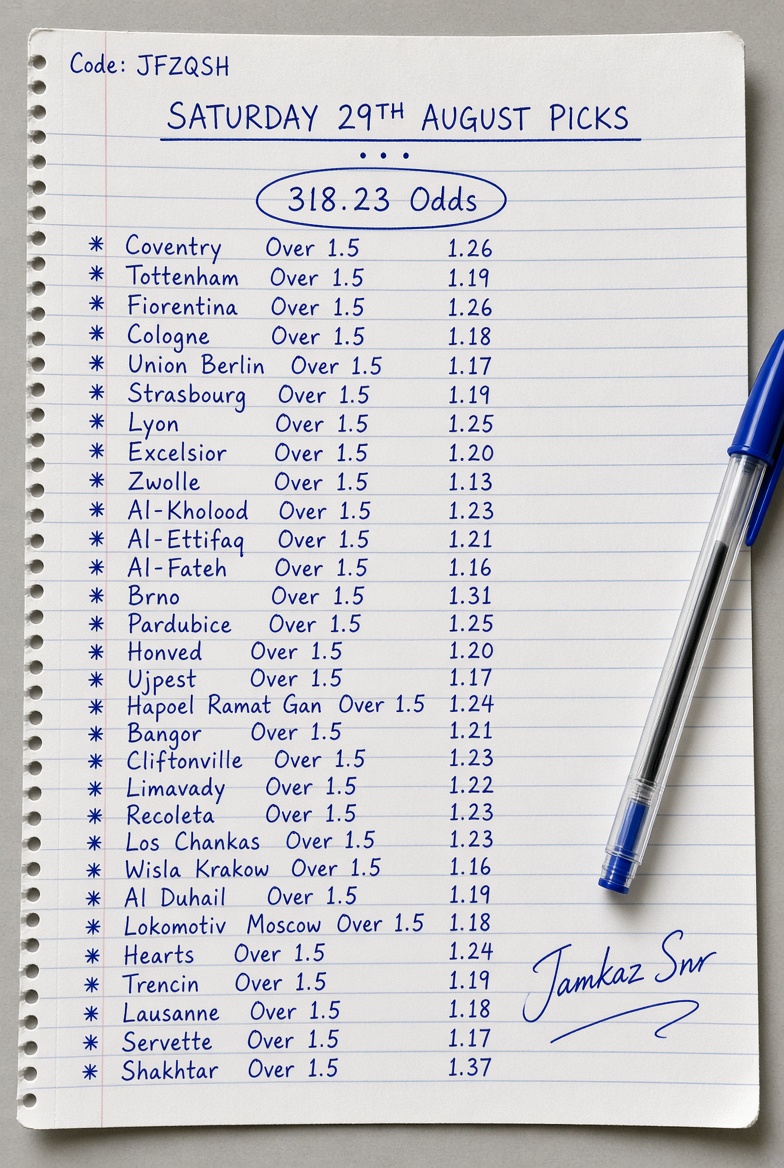 Code: JFZQSH
SATURDAY 29TH AUGUST PICKS
...
318.23 Odds
* Coventry Over 1.5 1.26
* Tottenham Over 1.5 1.19
* Fiorentina Over 1.5 1.26
* Cologne Over 1.5 1.18
* Union Berlin Over 1.5 1.17
* Strasbourg Over 1.5 1.19
* Lyon Over 1.5 1.25
* Excelsior Over 1.5 1.20
* Zwolle Over 1.5 1.13
* Al-Kholood Over 1.5 1.23
* Al-Ettifaq Over 1.5 1.21
* Al-Fateh Over 1.5 1.16
* Brno Over 1.5 1.31
* Pardubice Over 1.5 1.25
* Honved Over 1.5 1.20
* Ujpest Over 1.5 1.17
* Hapoel Ramat Gan Over 1.5 1.24
* Bangor Over 1.5 1.21
* Cliftonville Over 1.5 1.23
* Limavady Over 1.5 1.22
* Recoleta Over 1.5 1.23
* Los Chankas Over 1.5 1.23
* Wisla Krakow Over 1.5 1.16
* Al Duhail Over 1.5 1.19
* Lokomotiv Moscow Over 1.5 1.18
* Hearts Over 1.5 1.24
* Trencin Over 1.5 1.19
* Lausanne Over 1.5 1.18
* Servette Over 1.5 1.17
* Shakhtar Over 1.5 1.37
Jamkaz Snr